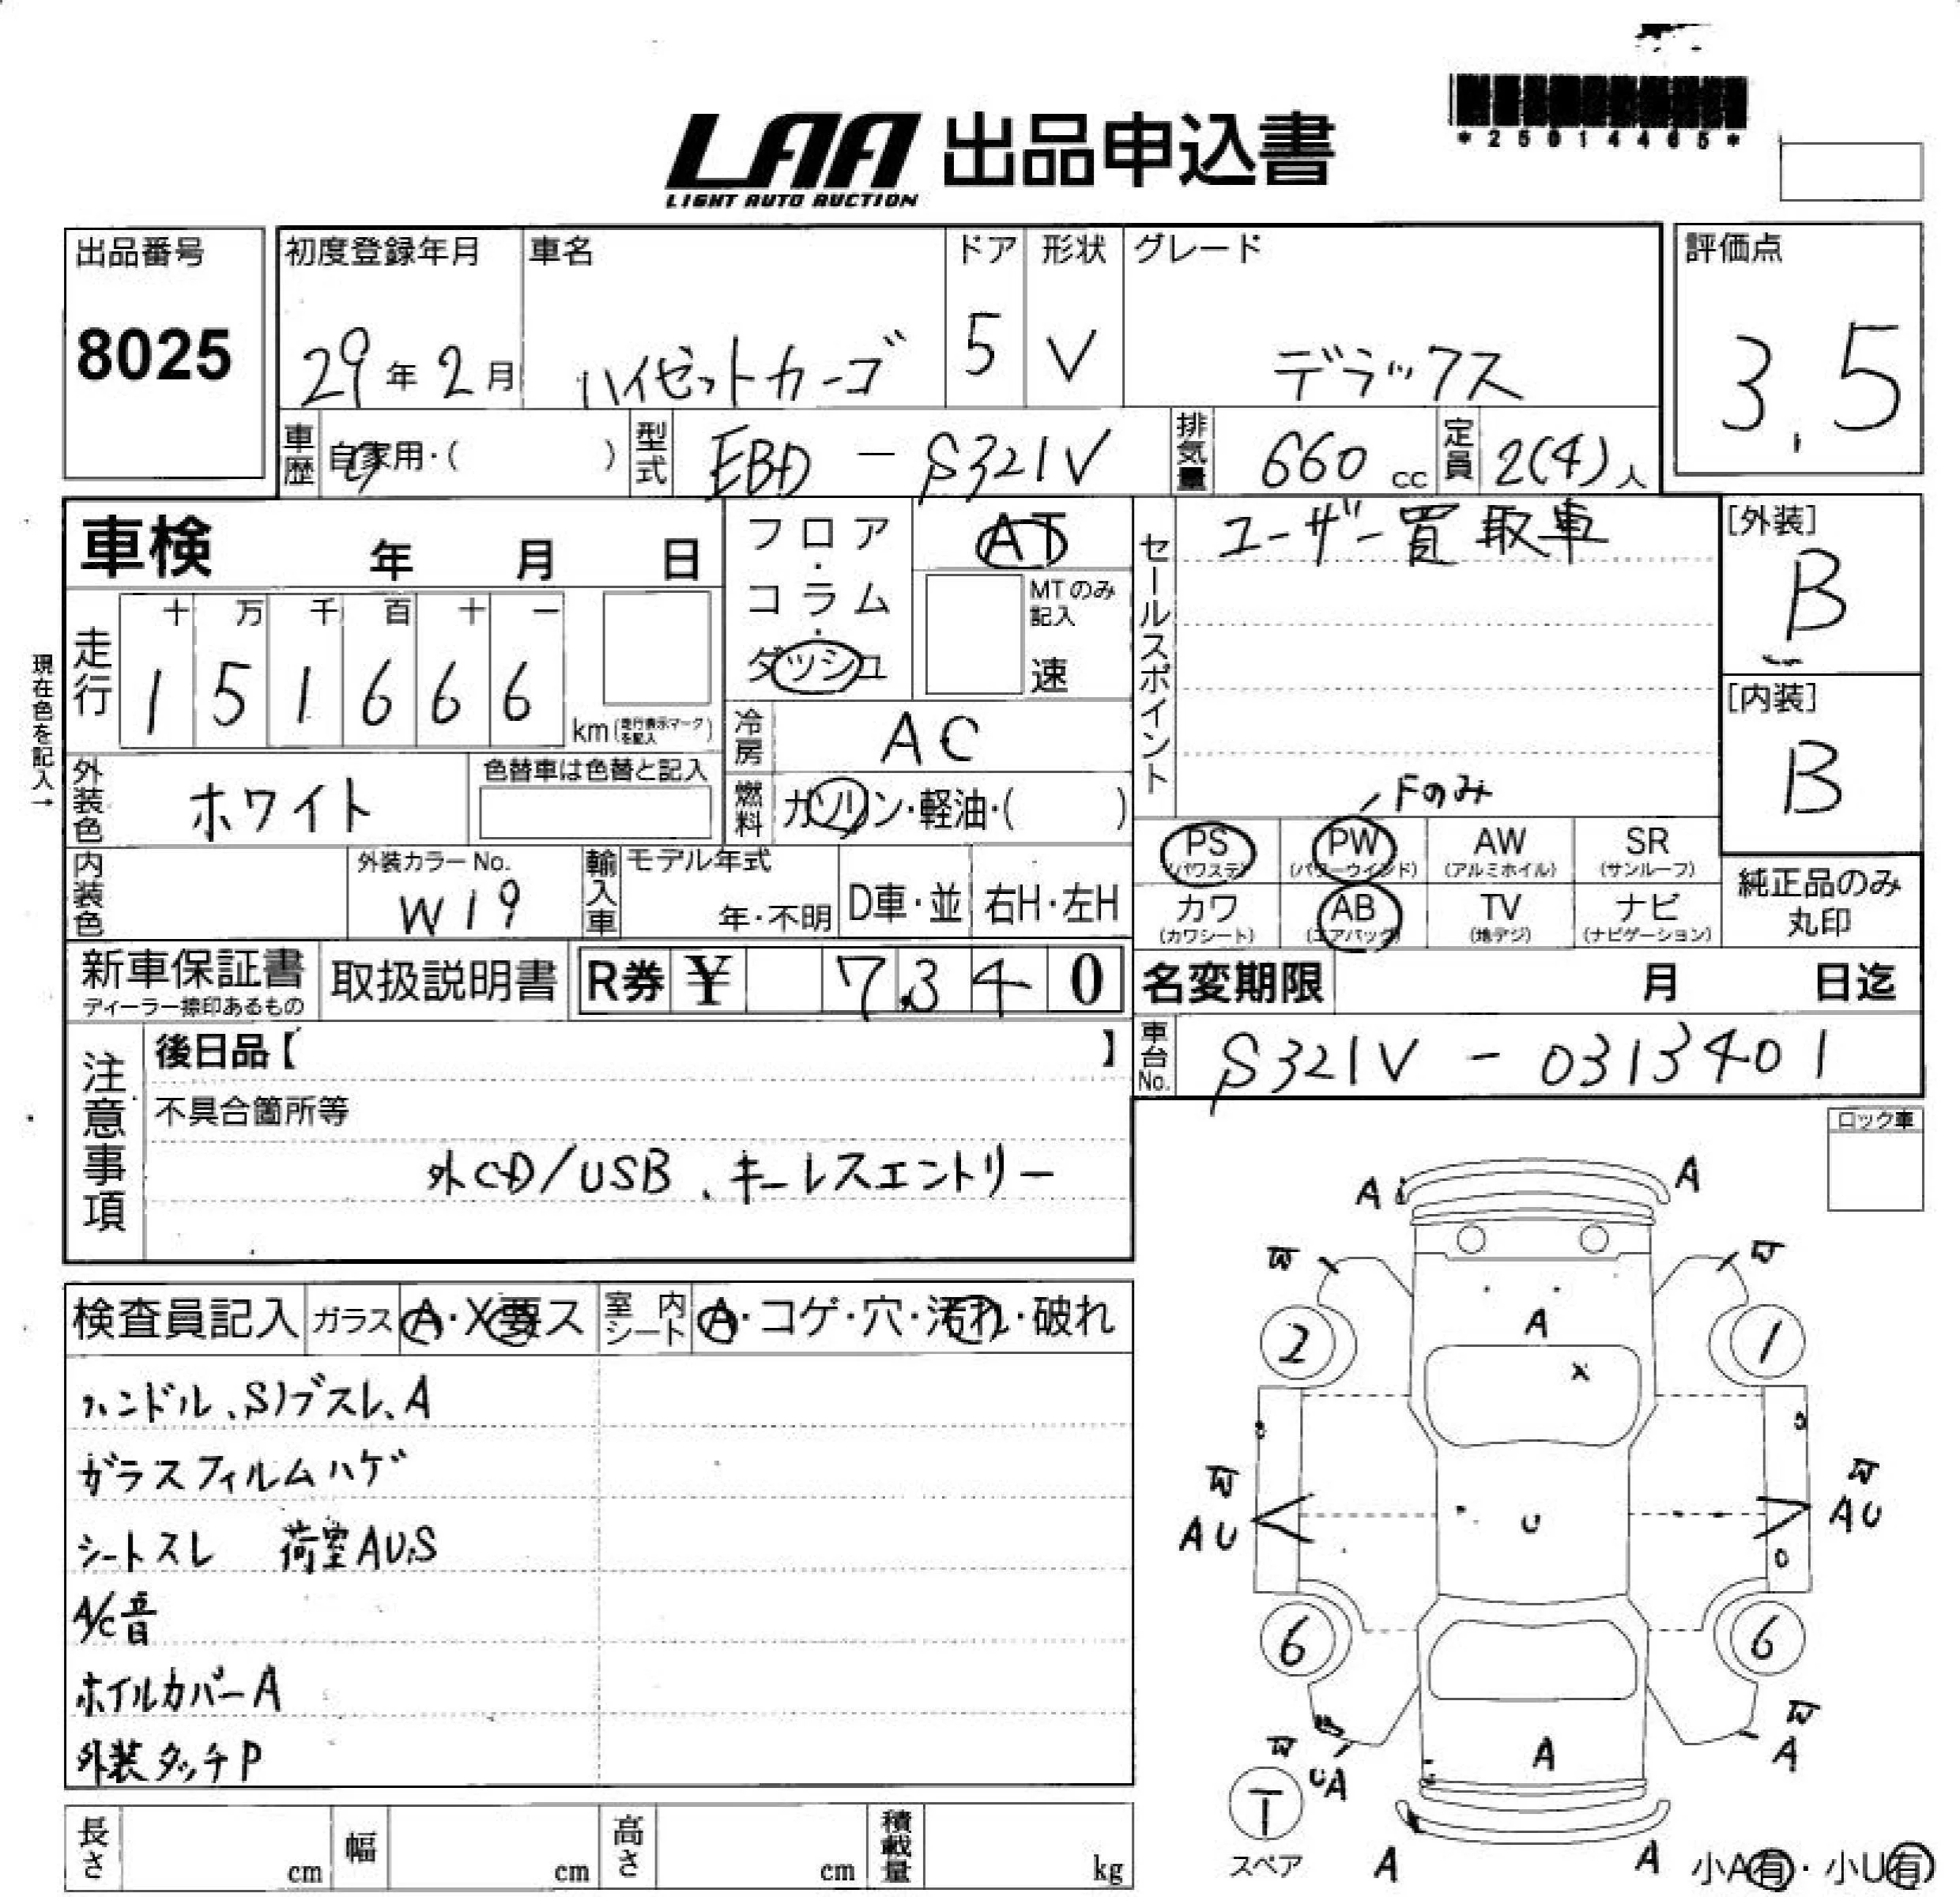 *25014465*
LAA 出品申込書
LIGHT AUTO AUCTION
出品番号
8025
初度登録年月
29年2月
車名
ハイゼットカーゴ
ドア
5
形状
V
グレード
デラックス
評価点
3.5
車歴
自家用・( )
型式
EBD - S321V
排気量
660 cc
定員
2(4)人
車検 年 月 日
現在色を記入→
走行
十 万 千 百 十 一
1 5 1 6 6 6
km(走行表示マークを記入)
フロア・コラム・ダッシュ
AT
MTのみ記入
速
冷房
AC
燃料
ガソリン・軽油・( )
外装色
ホワイト
色替車は色替と記入
内装色
外装カラーNo.
W19
輸入車
モデル年式
年・不明
D車・並
右H・左H
セールスポイント
ユーザー買取車
Fのみ
[外装]
B
[内装]
B
PS (パワステ)
PW (パワーウインド)
AW (アルミホイル)
SR (サンルーフ)
カワ (カワシート)
AB (エアバッグ)
TV (地デジ)
ナビ (ナビゲーション)
純正品のみ
丸印
新車保証書
ディーラー捺印あるもの
取扱説明書
R券 ¥ 7,340
名変期限 月 日迄
車台No.
S321V - 0313401
注意事項
後日品【 】
不具合箇所等
外CD/USB、キーレスエントリー
ロック車
検査員記入
ガラス A・X要ス
室内シート A・コゲ・穴・汚れ・破れ
ハンドル、S)ブスレ、A
ガラスフィルムハゲ
シートスレ 荷室AU,S
A/C音
ホイルカバーA
外装タッチP
A A
W W
2 A 1
X
W W
AU U AU
6 6
W W
UA A A
T
スペア
A A
小A有・小U有
長さ cm
幅 cm
高さ cm
積載量 kg